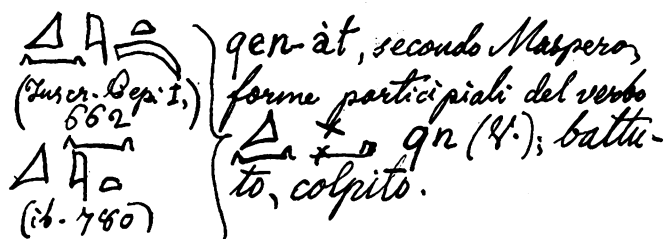 (Inscr. Pepi I,)
662
(ib. 780)
qen-àt, secondo Maspero,
forme participiali del verbo
qn (V.); battu-
to, colpito.